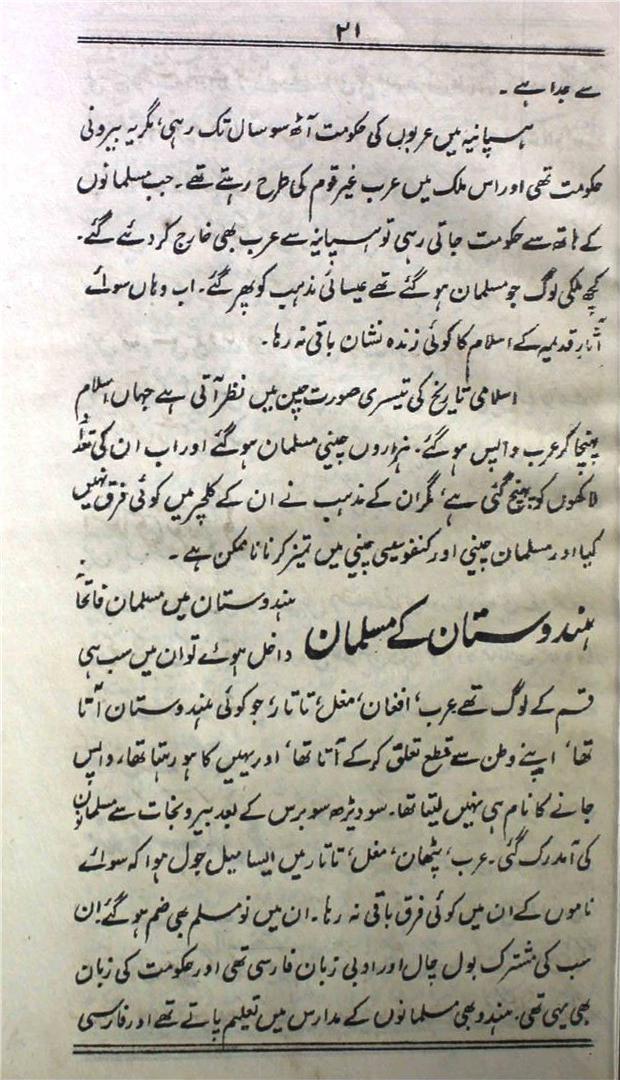 ۲۱
سے جدا ہے۔
ہسپانیہ میں عربوں کی حکومت آٹھ سو سال تک رہی، مگر یہ بیرونی
حکومت تھی اور اس ملک میں عرب غیر قوم کی طرح رہتے تھے۔ جب مسلمانوں
کے ہاتھ سے حکومت جاتی رہی تو ہسپانیہ سے عرب بھی خارج کر دئے گئے۔
کچھ ملکی لوگ جو مسلمان ہو گئے تھے عیسائی مذہب کو پھر گئے۔ اب وہاں سوائے
آثارِ قدیمہ کے اسلام کا کوئی زندہ نشان باقی نہ رہا۔
اسلامی تاریخ کی تیسری صورت چین میں نظر آتی ہے جہاں اسلام
پہنچا کر عرب واپس ہو گئے۔ ہزاروں چینی مسلمان ہو گئے اور اب ان کی تعداد
لاکھوں کو پہنچ گئی ہے، مگر ان کے مذہب نے ان کے کلچر میں کوئی فرق نہیں
کیا اور مسلمان چینی اور کنفوسیسی چینی میں تمیز کرنا ناممکن ہے۔
ہندوستان کے مسلمان
ہندوستان میں مسلمان فاتحانہ
داخل ہوئے تو ان میں سب ہی
قسم کے لوگ تھے عرب، افغان، مغل، تاتار، جو کوئی ہندوستان آتا
تھا، اپنے وطن سے قطع تعلق کر کے آتا تھا، اور یہیں کا ہو رہتا تھا، واپس
جانے کا نام ہی نہیں لیتا تھا۔ سو ڈیڑھ سو برس کے بعد بیرونجات سے مسلمانوں
کی آمد رک گئی۔ عرب، پٹھان، مغل، تاتار میں ایسا میل جول ہوا کہ سوائے
ناموں کے ان میں کوئی فرق باقی نہ رہا۔ ان میں نو مسلم بھی ضم ہو گئے ان
سب کی مشترک بول چال اور ادبی زبان فارسی تھی اور حکومت کی زبان
بھی یہی تھی۔ ہندو بھی مسلمانوں کے مدارس میں تعلیم پاتے تھے اور فارسی